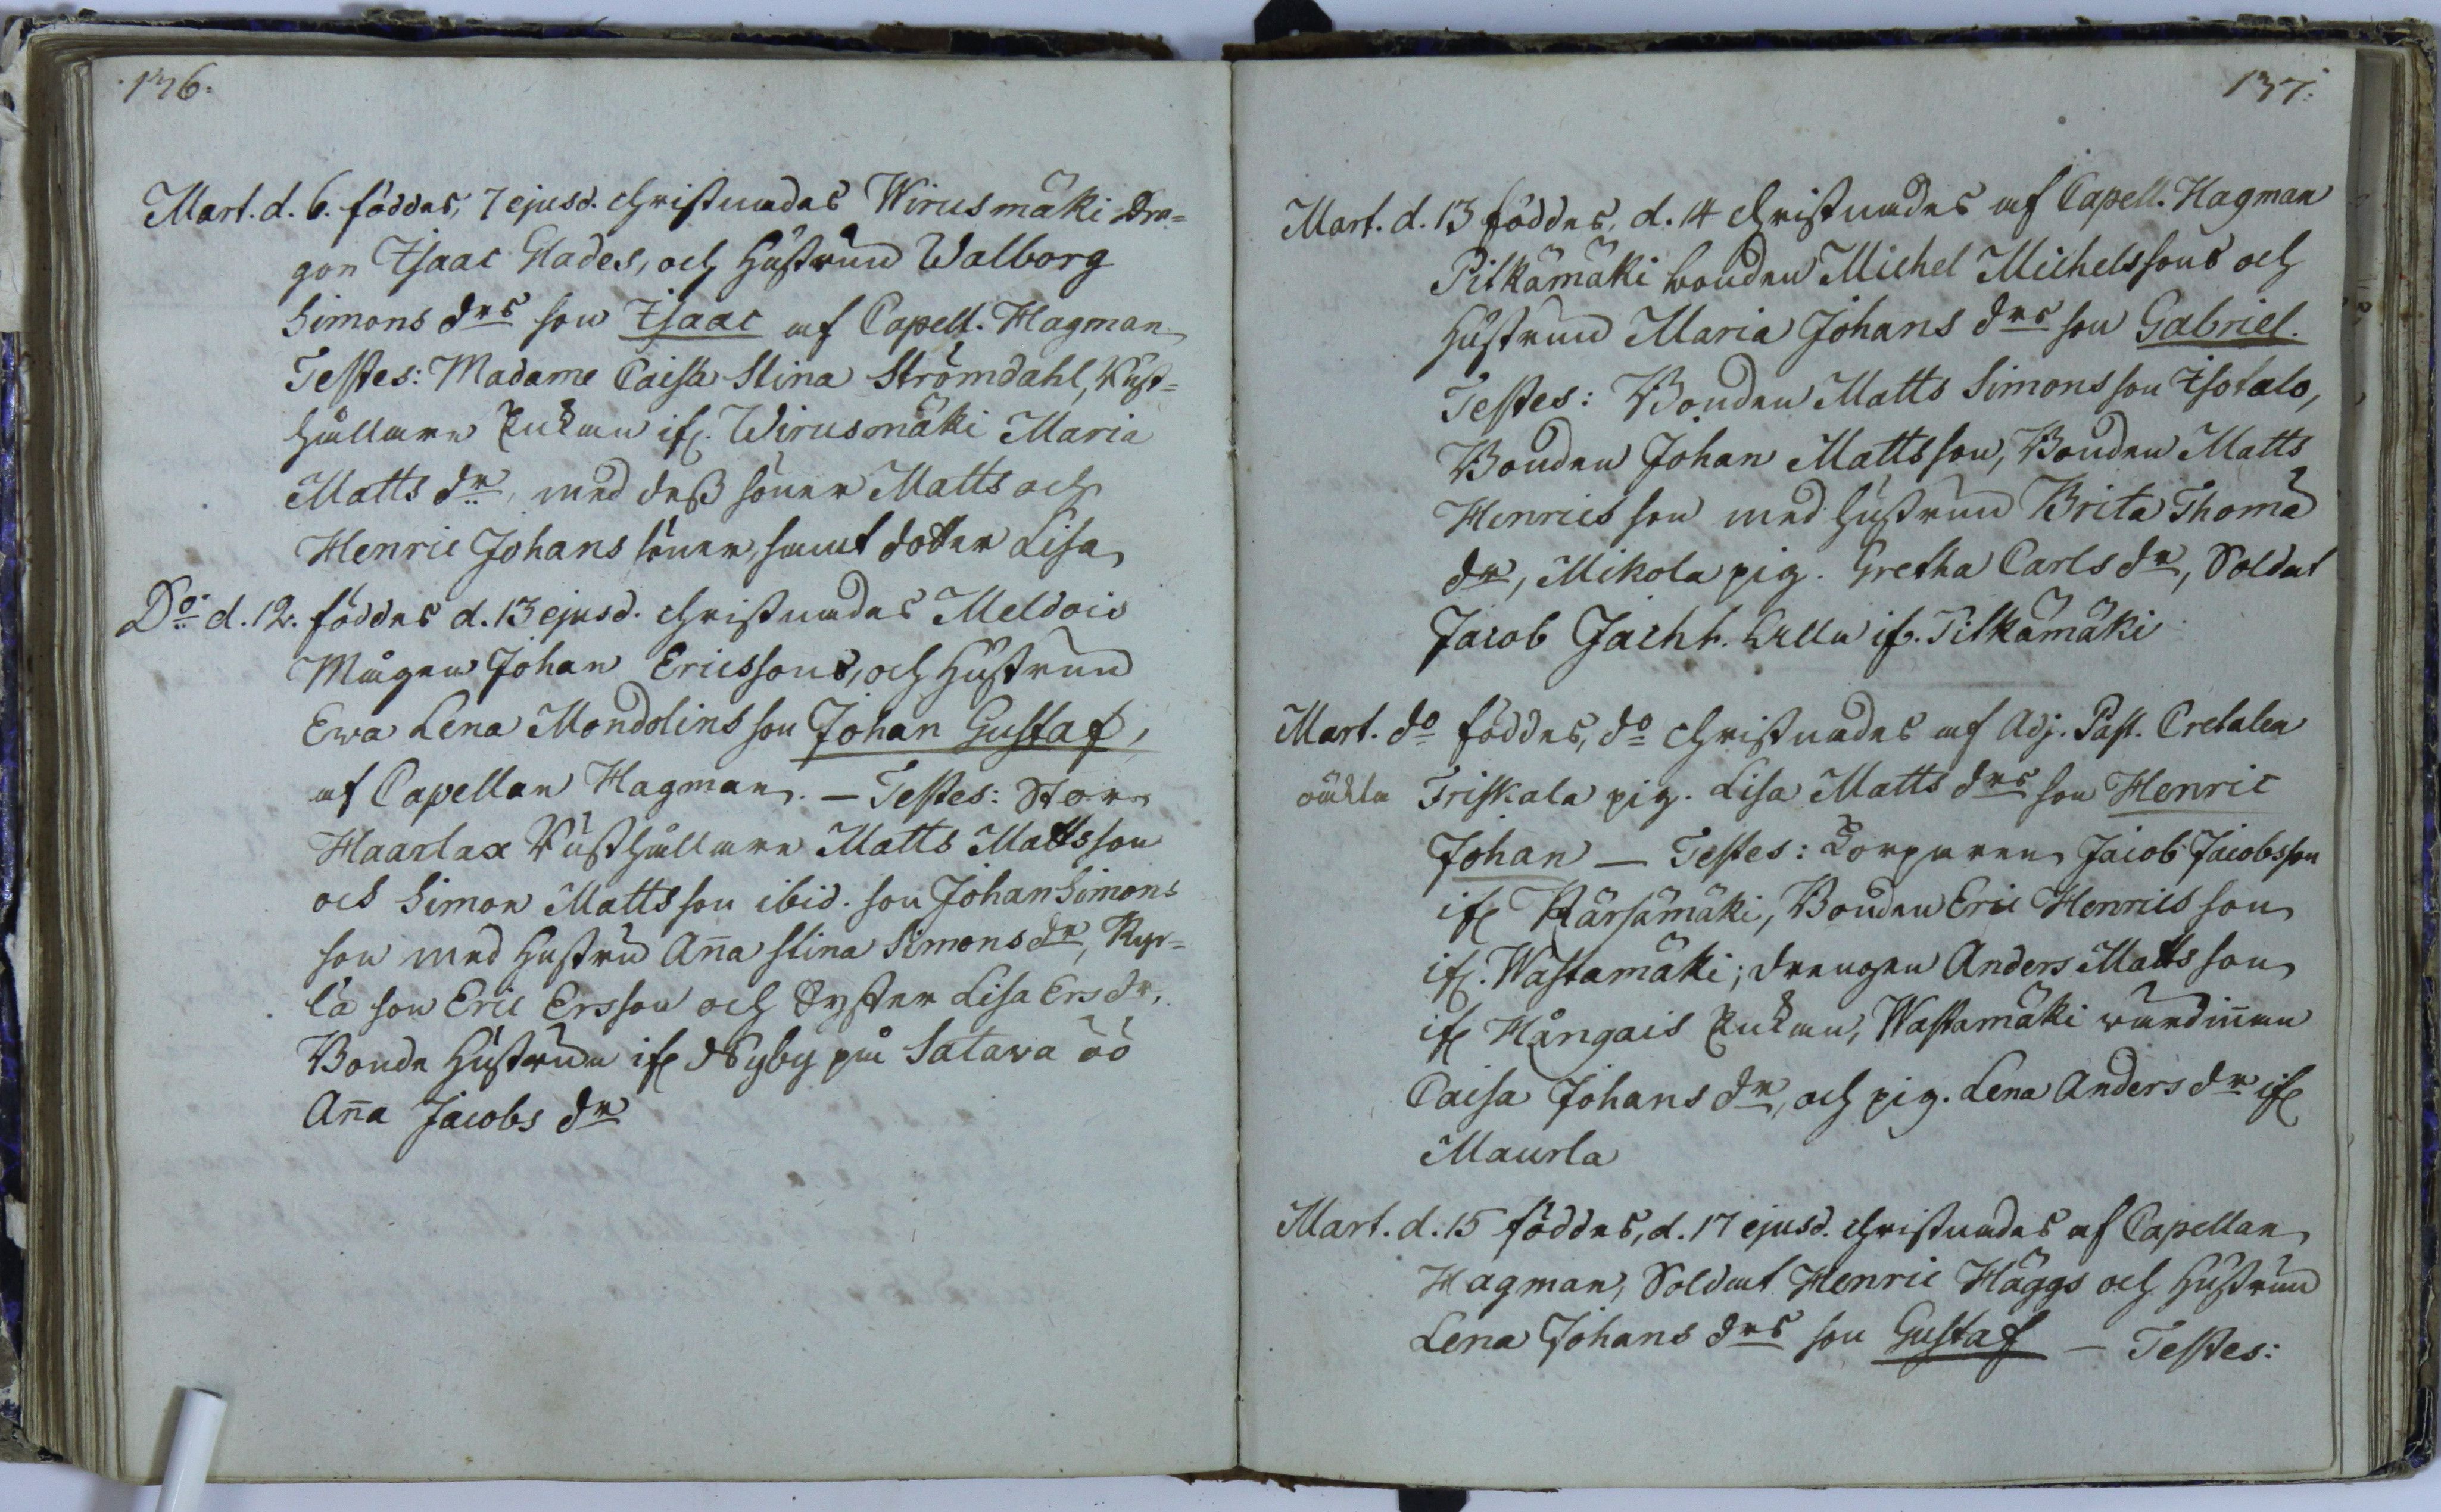 136.
Mart. d. 6. föddes, 7 ejusd. christnades Wirusmäki Dra=
gon Isaac Glades, och hustrun Walborg
Simons drs son Isaac af Capell. Hagman
Testes: Madame Caisa Stina Strömdahl, Rust=
hållare Enkan ifr. Wirusmäki Maria
Matts dr, med dess söner Matts och
Henric Johans söner, samt dotter Lisa
Do d. 12. föddes d. 13 ejusd. christnades Meldois
Mågen Johan Ericssons, och Hustrun
Ewa Lena Mondolins son Johan Gustaf,
af Capellan Hagman. — Testes: Stor
Haarlax Rusthållare Matts Mattsson
och Simon Mattsson ibid. son Johan Simons
son med Hustru Anna Stina Simons dr, Kyr=
lä son Eric Ersson och Syster Lisa Ers dr,
Bonde Hustrun ifr Nyby på Satava öö
Anna Jacobs dr
137.
Mart. d. 13 föddes, d. 14 christnades af Capell. Hagman
Pitkämäki bonden Michel Michelssons och
Hustrun Maria Johans drs son Gabriel.
Testes: Bonden Matts Simonsson Isotalo,
Bonden Johan Mattsson, Bonden Matts
Henricsson med hustrun Brita Thomä
dr, Mikola pig. Gretha Carls dr, Soldat
Jacob Jacht. alla ifr. Pitkämäki
Mart. do föddes, do christnades af Adj. Past. Cretalen
oäkta Friskala pig. Lisa Matts drs son Henric
Johan — Testes: Korparen Jacob Jacobsson
ifr Kärsämäki, Bonden Eric Henricsson
ifr. Wastamäki; drengen Anders Mattsson
ifr Hångais Enkan, Wastamäki wärdinnan
Caisa Johans dr, och pig. Lena Anders dr ifr
Maurla
Mart. d. 15 föddes, d. 17 ejusd. christnades af Capellan
Hagman, Soldat Henric Häggs och Hustrun
Lena Johans drs son Gustaf — Testes: